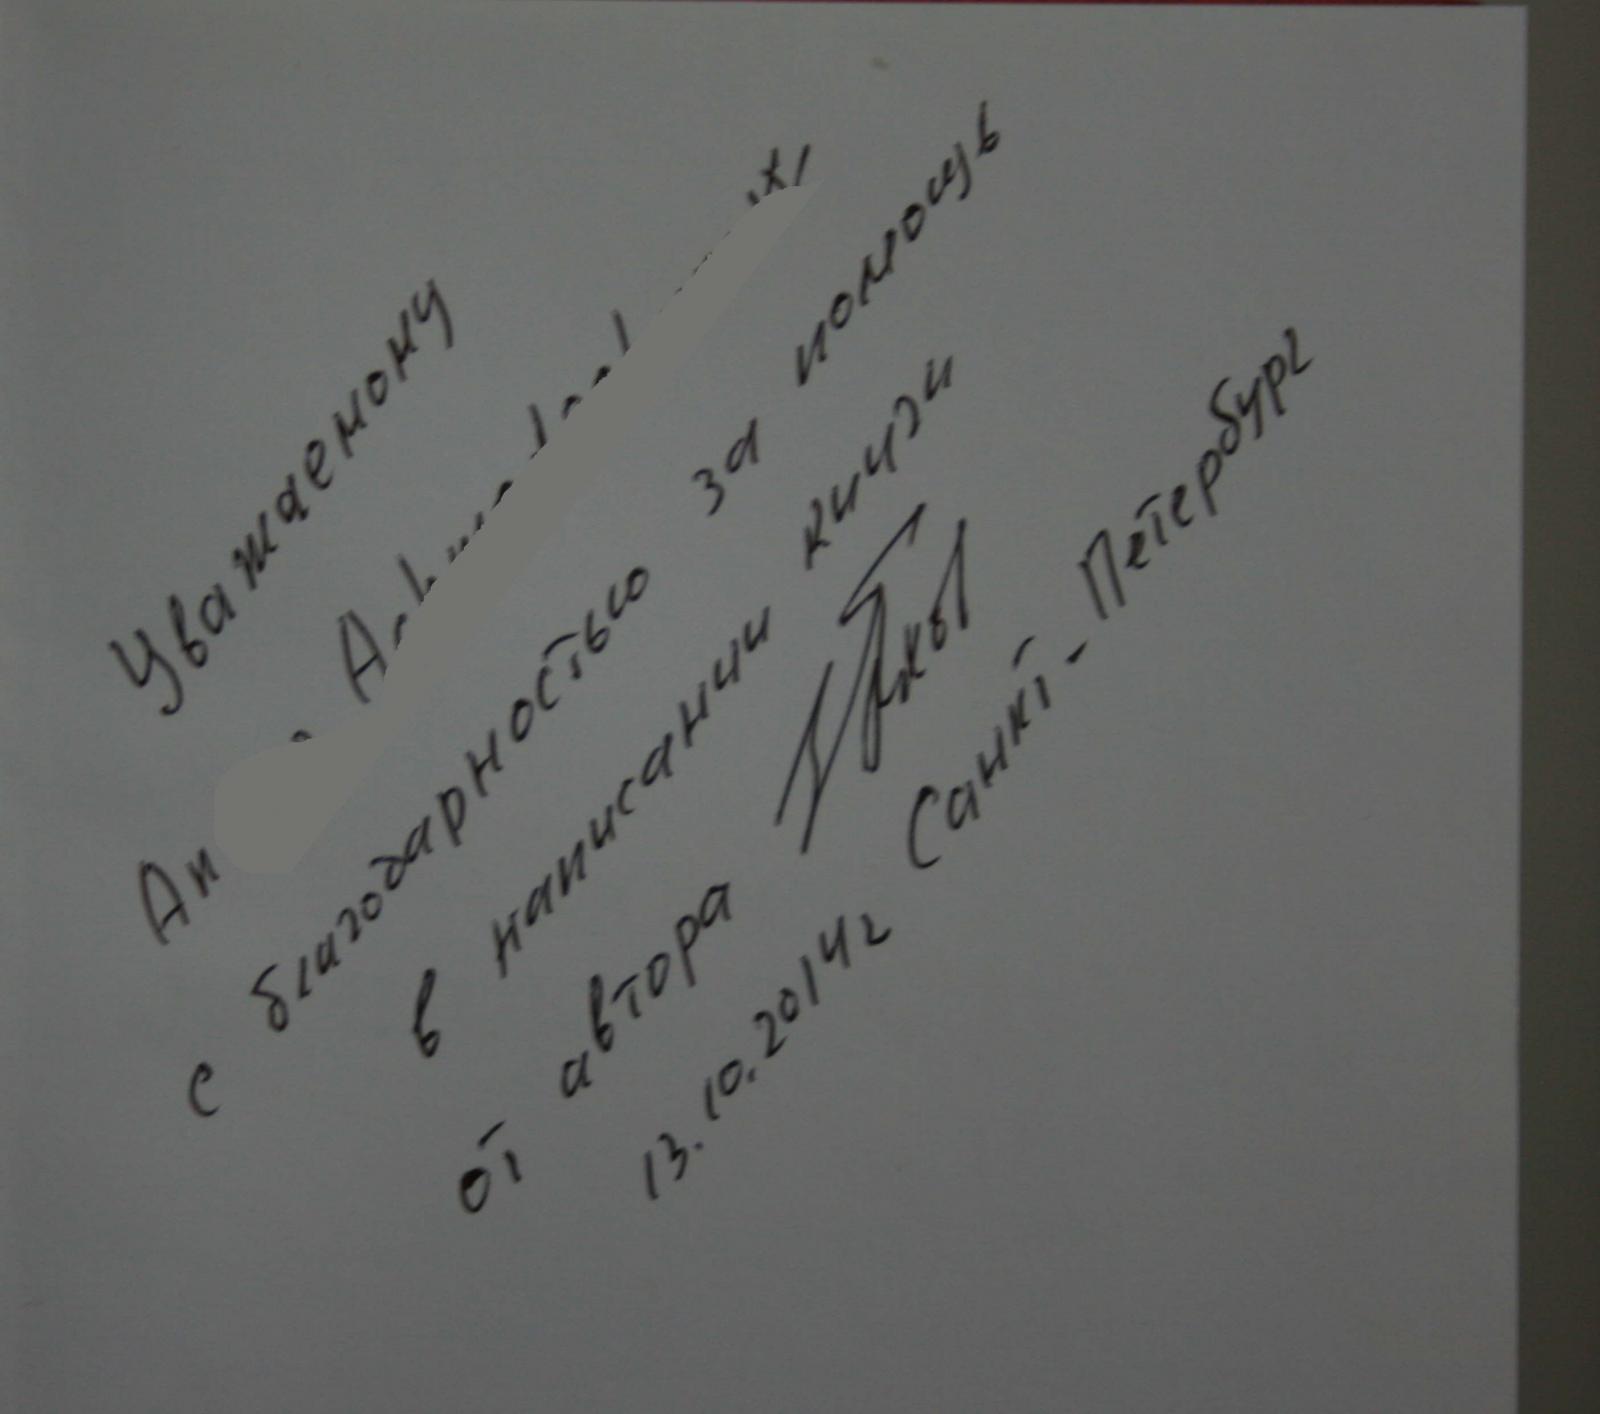 Уважаемому
с благодарностью за помощь
в написании книги
от автора
13.10.2014г Санкт-Петербург